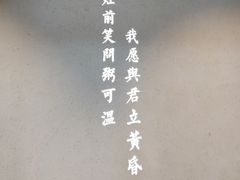 我愿與君立黃昏
灶前笑問粥可溫